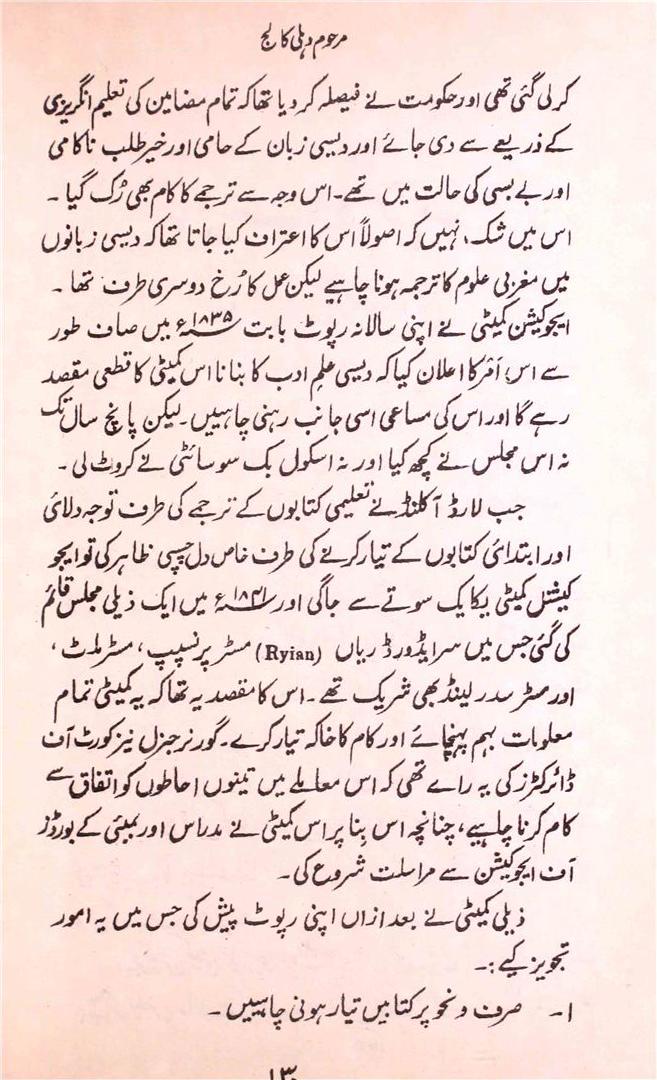 مرحوم دہلی کالج
کر لی گئی تھی اور حکومت نے فیصلہ کر دیا تھا کہ تمام مضامین کی تعلیم انگریزی
کے ذریعے سے دی جائے اور دیسی زبان کے حامی اور خیر طلب ناکامی
اور بے بسی کی حالت میں تھے۔ اس وجہ سے ترجمے کا کام بھی رُک گیا ۔
اس میں شک نہیں کہ اصولاً اس کا اعتراف کیا جاتا تھا کہ دیسی زبانوں
میں مغربی علوم کا ترجمہ ہونا چاہیے لیکن عمل کا رُخ دوسری طرف تھا ۔
ایجوکیشن کمیٹی نے اپنی سالانہ رپوٹ بابت ۱۸۳۵ء میں صاف طور
سے اس اَمر کا اعلان کیا کہ دیسی علمِ ادب کا بنانا اس کمیٹی کا قطعی مقصد
رہے گا اور اس کی مساعی اسی جانب رہنی چاہییں۔ لیکن پانچ سال تک
نہ اس مجلس نے کچھ کیا اور نہ اسکول بک سوسائٹی نے کروٹ لی ۔
جب لارڈ آکلنڈ نے تعلیمی کتابوں کے ترجمے کی طرف توجہ دلائی
اور ابتدائی کتابوں کے تیار کرنے کی طرف خاص دل چسپی ظاہر کی تو ایجو
کیشنل کمیٹی یکایک سوتے سے جاگی اور ۱۸۴۱ء میں ایک ذیلی مجلس قائم
کی گئی جس میں سر ایڈورڈ ریاں (Ryian) مسٹر پرنسیپ، مسٹر ملٹ،
اور مسٹر سدر لینڈ بھی شریک تھے ۔ اس کا مقصد یہ تھا کہ یہ کمیٹی تمام
معلومات بہم پہنچائے اور کام کا خاکہ تیار کرے۔ گورنر جنرل نیز کورٹ آف
ڈائرکٹرز کی یہ راے تھی کہ اس معاملے میں تینوں احاطوں کو اتفاق سے
کام کرنا چاہیے، چنانچہ اس بنا پر اس کمیٹی نے مدراس اور بمبئی کے بورڈز
آف ایجوکیشن سے مراسلت شروع کی۔
ذیلی کمیٹی نے بعد ازاں اپنی رپوٹ پیش کی جس میں یہ امور
تجویز کیے :۔
۱۔ صرف و نحو پر کتابیں تیار ہونی چاہییں ۔
۱۳۰